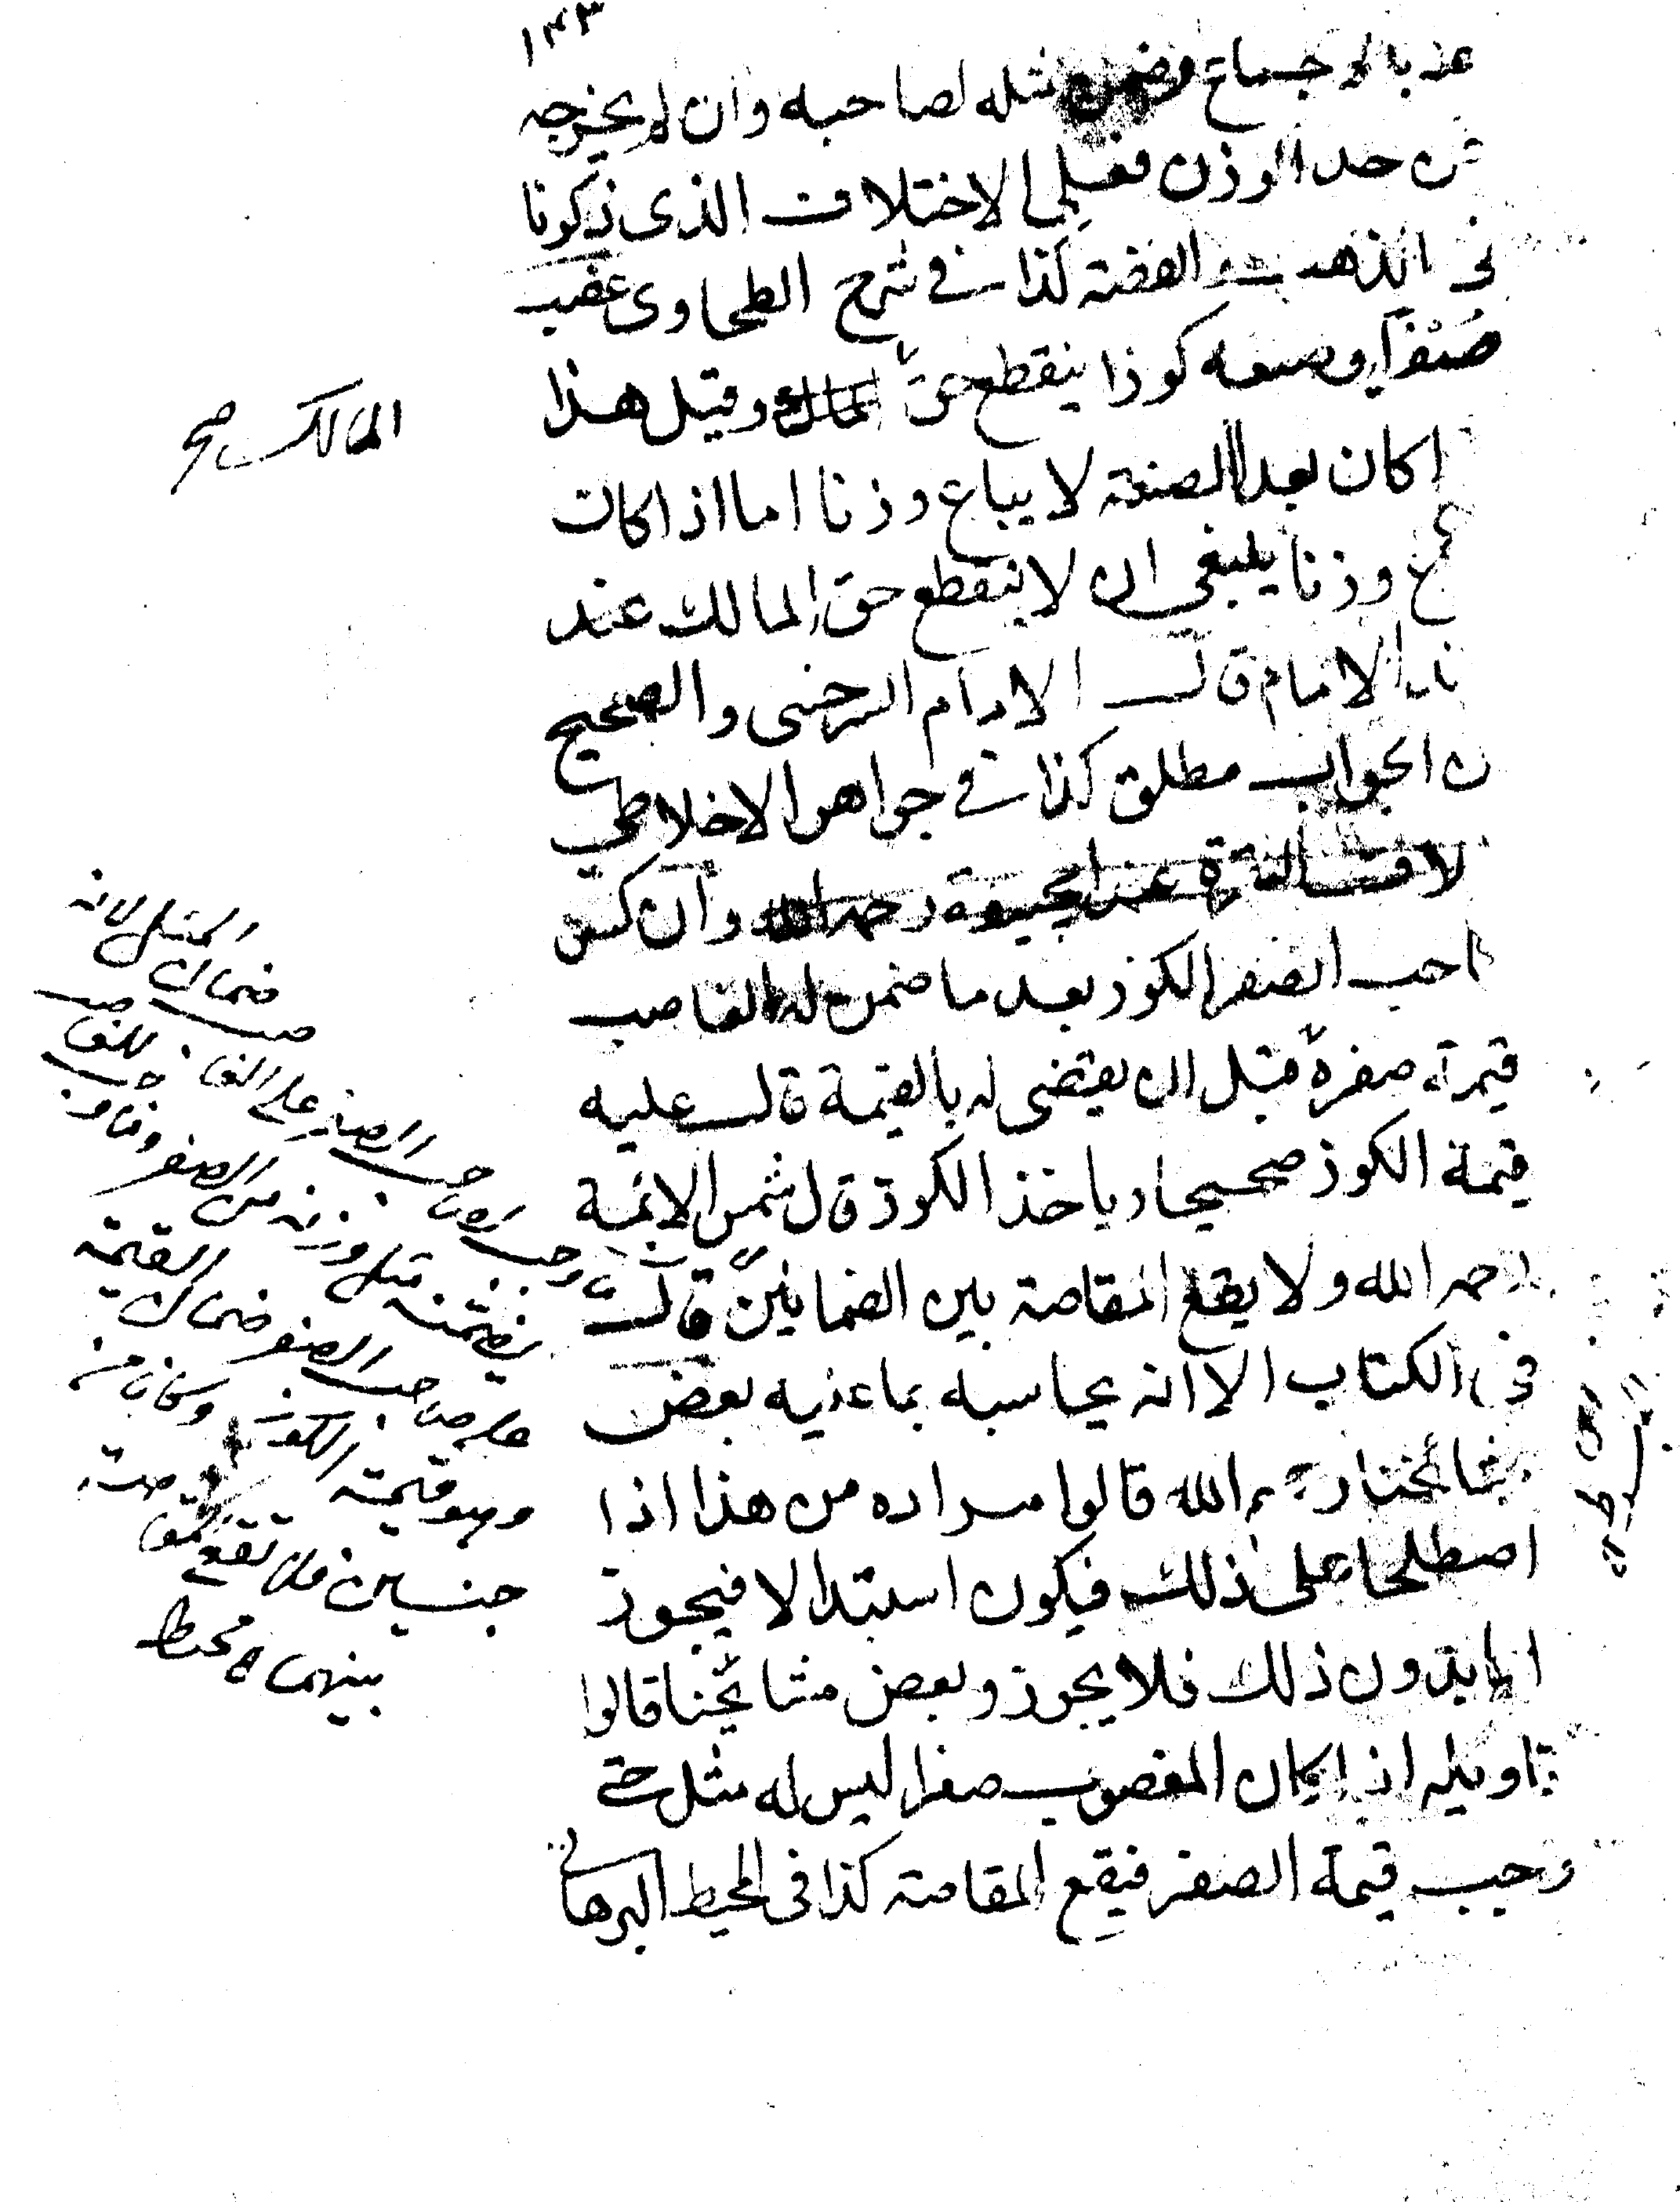 ١٤٣
عنه بالاجماع وضمن مثله لصاحبه وان لم يخرجه
عن حد الوزن فعلى الاختلاف الذى ذكرنا
فى الذهب والفضة كذا فى شرح الطحاوى غصب
صفرا وصنعه كوزا ينقطع حق المالك وقيل هذا
المالك صح
اكان بعد الصنعة لا يباع وزنا اما اذا كان
وزنا ينبغى ان لا ينقطع حق المالك عند
الامام قال الامام السرخسى والصحيح
ن الجواب مطلق كذا فى جواهر الاخلاطى
وان كسر
احب الصفر الكوز بعد ما ضمن له الغاصب
قيمة صفره قبل ان يقضى له بالقيمة قال عليه
قيمة الكوز صحيحا وياخذ الكوز قال شمس الائمة
رحمه الله ولا يقع المقاصة بين الضمانين قال
فى الكتاب الا انه يحاسبه بما عليه بعض
مشائخنا رحمهم الله قالوا مراده من هذا اذا
اصطلحا على ذلك فيكون استبدالا فيجوز
اما بدون ذلك فلا يجوز وبعض مشائخنا قالوا
تاويله اذا كان المغصوب صفرا ليس له مثل حتى
وجب قيمة الصفر فيقع المقاصة كذا فى المحيط البرهانى
لانه
ضمان المثل
للغاصب
صاحب الصفر على الغاصب
مثل وزنه من الصفر
على صاحب الصفر ضمان القيمة
وهو قيمة الكوز وكانا من
جنسين فلا تقع المقاصة
بينهما محيط